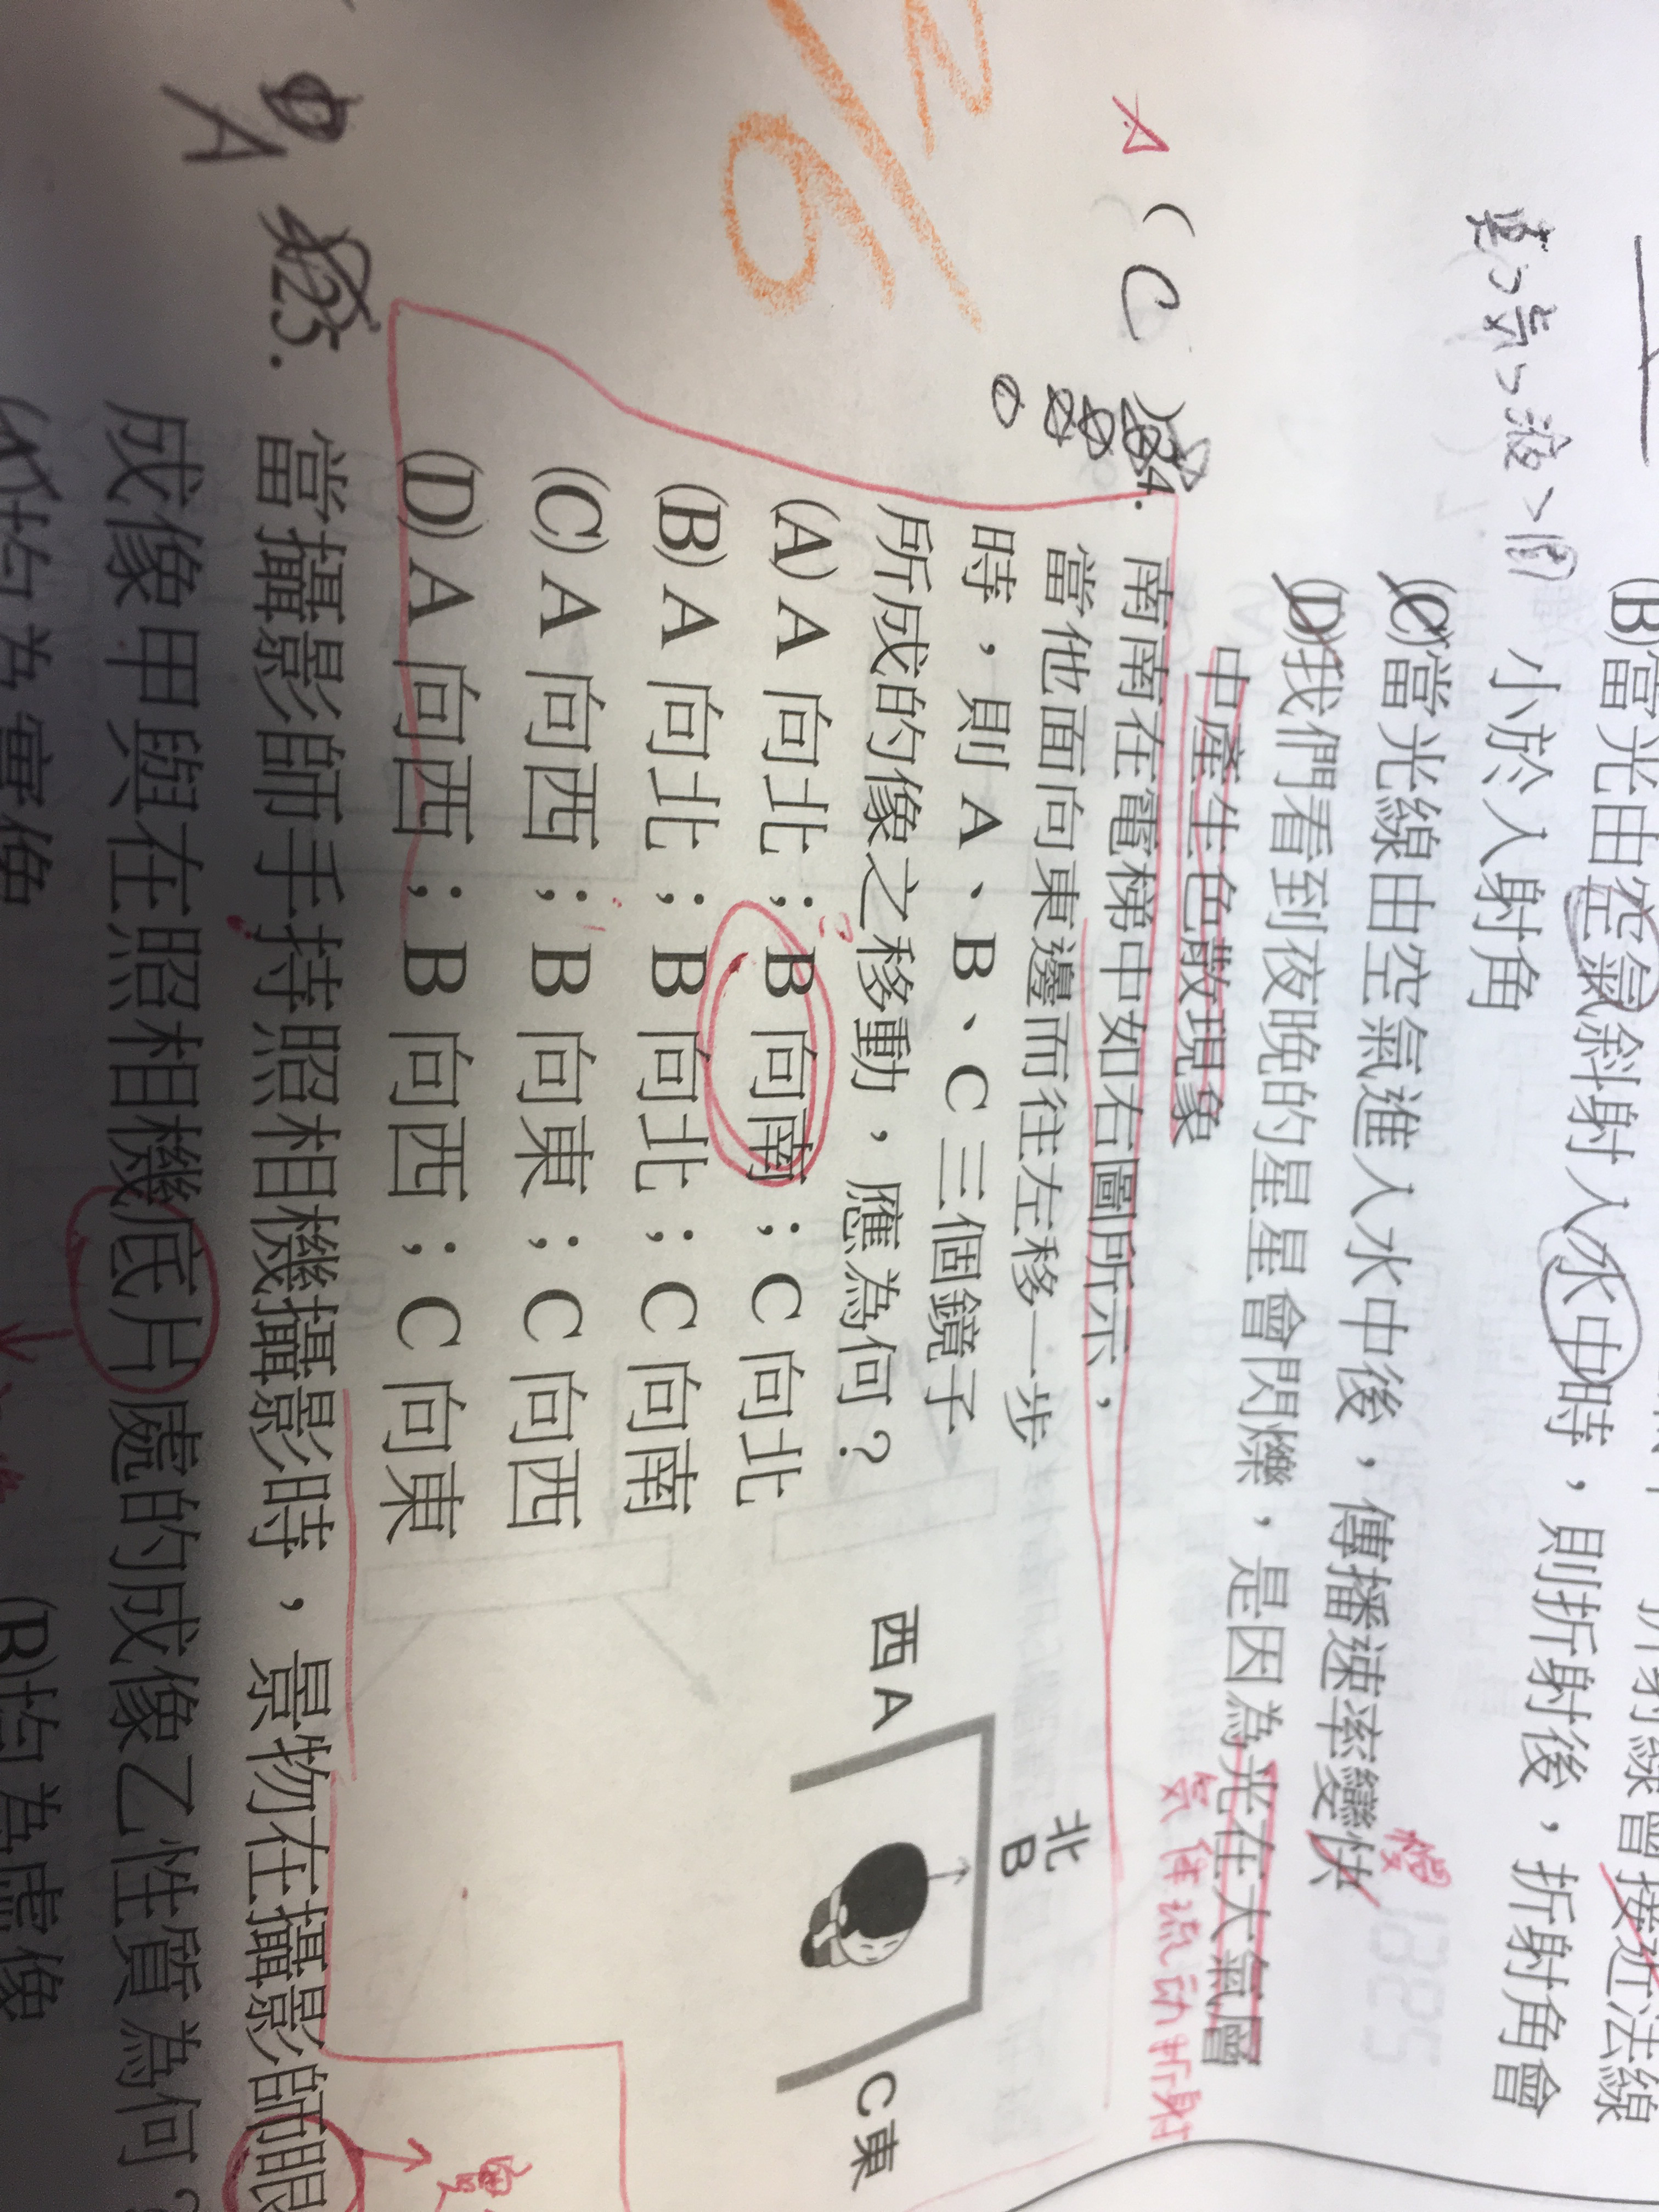 (B)當光由空氣斜射入水中時，則折射後，折射角會
小於入射角
真＞氣＞液＞固
(C)當光線由空氣進入水中後，傳播速率變快
慢
(D)我們看到夜晚的星星會閃爍，是因為光在大氣層
中產生色散現象
氣體流动折射
A ( C ) 4. 南南在電梯中如右圖所示，
當他面向東邊而往左移一步
時，則 A、B、C 三個鏡子
所成的像之移動，應為何？
(A) A 向北；B 向南；C 向北
(B) A 向北；B 向北；C 向南
(C) A 向西；B 向東；C 向西
(D) A 向西；B 向西；C 向東
北
B
西 A
C 東
A 25. 當攝影師手持照相機攝影時，景物在攝影師眼
成像甲與在照相機底片處的成像乙性質為何？
(A)均為實像 (B)均為虛像